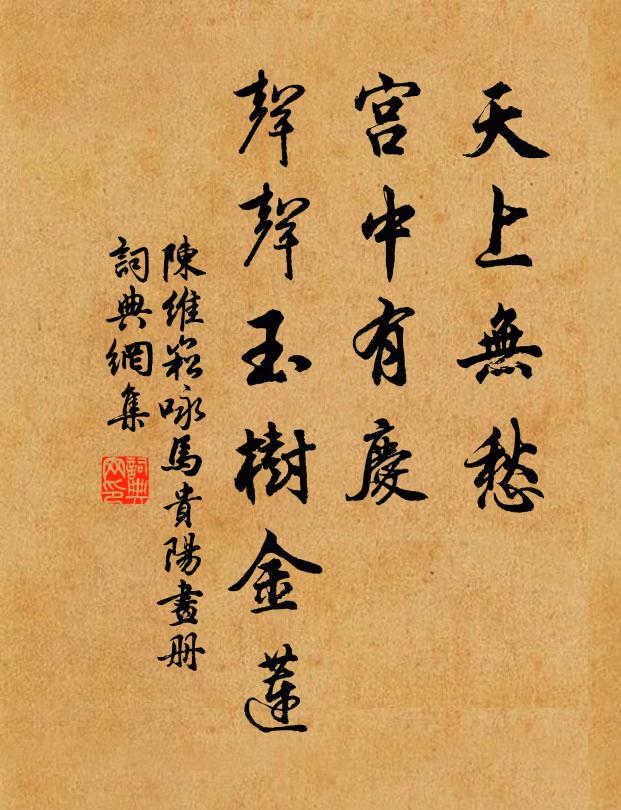 天上無愁
宮中有慶
聲聲玉樹金蓮
陳維崧咏馬貴陽畫册
詞典網集
詞典網印